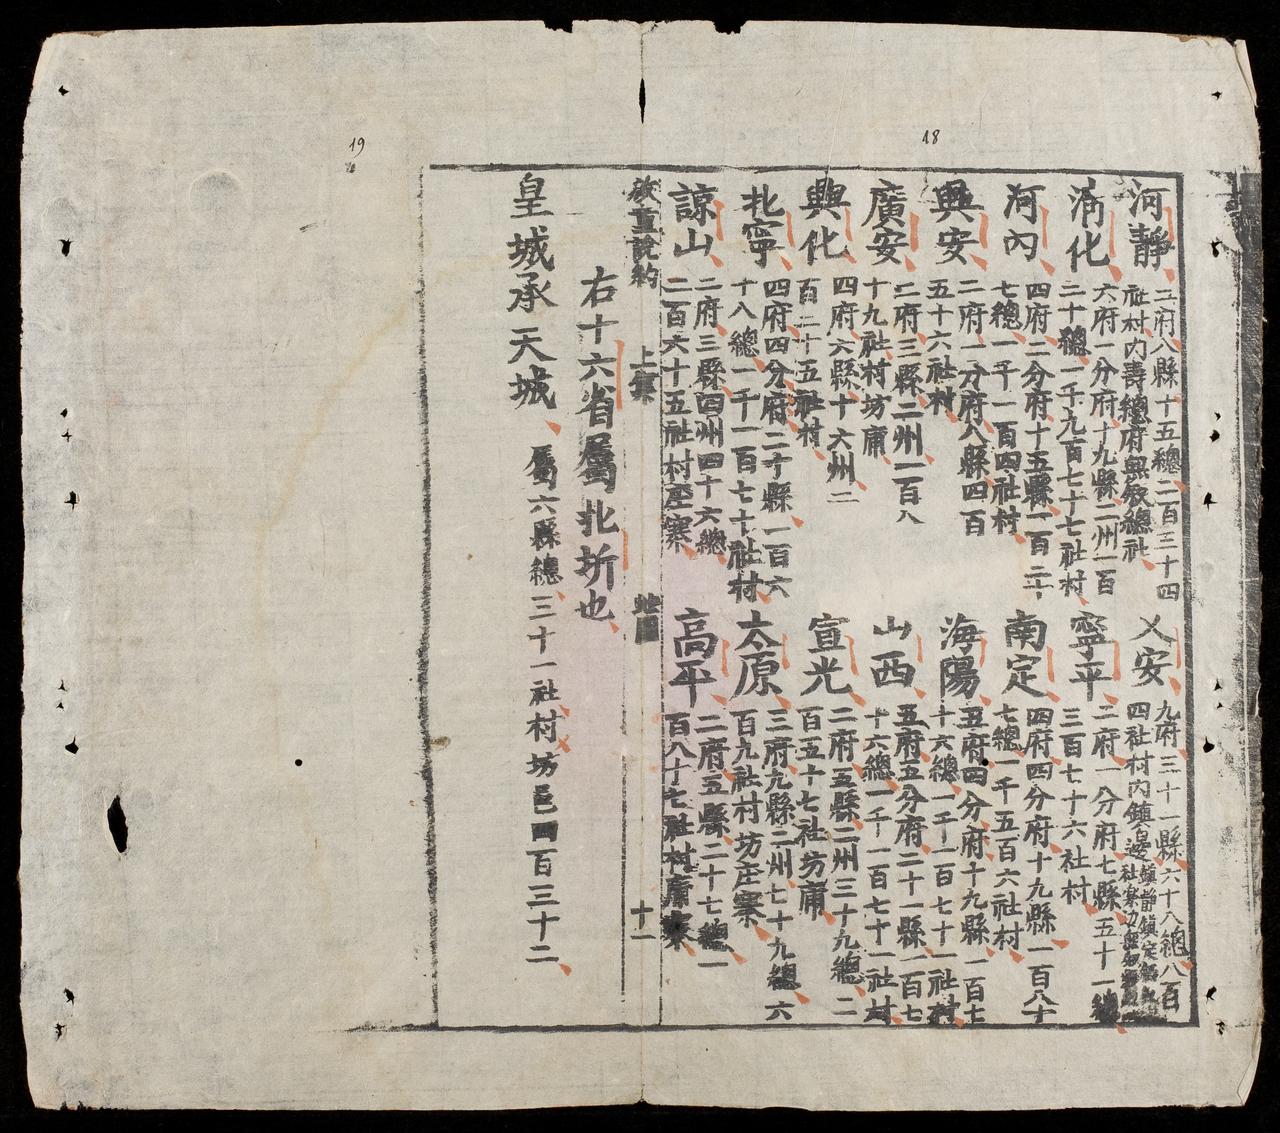 18
河靜
二府八縣十五總二百三十四
社村內壽總府無敘總社
乂安
九府三十一縣六十八總八百
四社村內鎮邊
清化
六府一分府十九縣二州一百
二十總一千九百七十七社村
寧平
二府一分府七縣五十一總
三百七十六社村
河內
四府二分府十五縣一百二十
七總一千一百四社村
南定
四府四分府十九縣一百八十
七總一千五百六社村
興安
二府一分府八縣四百
五十六社村
海陽
五府四分府十九縣一百七
十六總一千一百七十一社村
廣安
二府三縣二州一百八
十九社村坊庯
山西
五府五分府二十一縣一百七
十六總一千一百七十一社村
興化
四府六縣十六州二
百二十五社村
宣光
二府五縣二州三十九總二
百五十七社坊庯
北寧
四府四分府二十縣一百六
十八總一千一百七十社村
太原
三府九縣二州七十九總六
百九社村坊庄寨
諒山
二府三縣四州四十六總
二百六十五社村庄寨
高平
二府五縣二十七總一
百八十七社村庯寨
啟童說約 上集 地圖 十一
19
右十六省屬北圻也
皇城承天城
屬六縣總三十一社村坊邑四百三十二